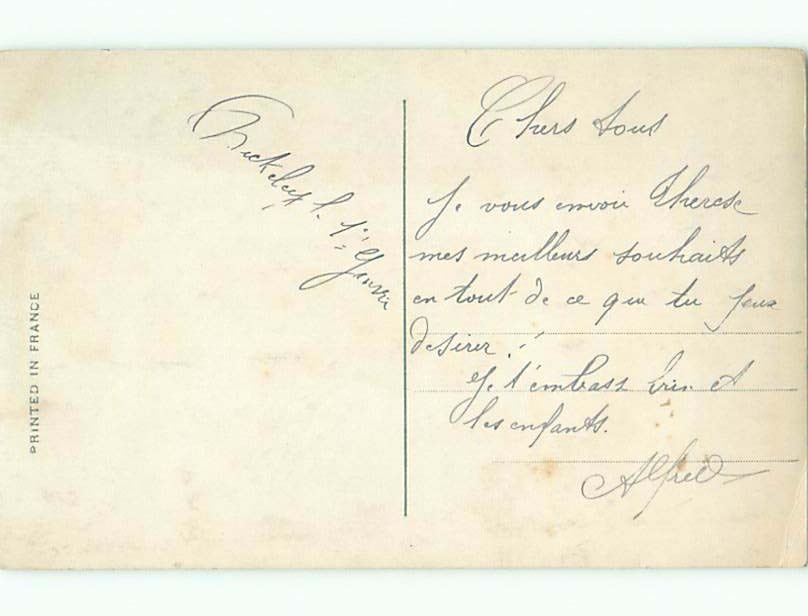 le 1er Janvier
PRINTED IN FRANCE
Chers tous
Je vous envoir Therese
mes meilleurs souhaits
en tout de ce que tu peux
desirer !!
Je t'embrass et
les enfants.
Alfred